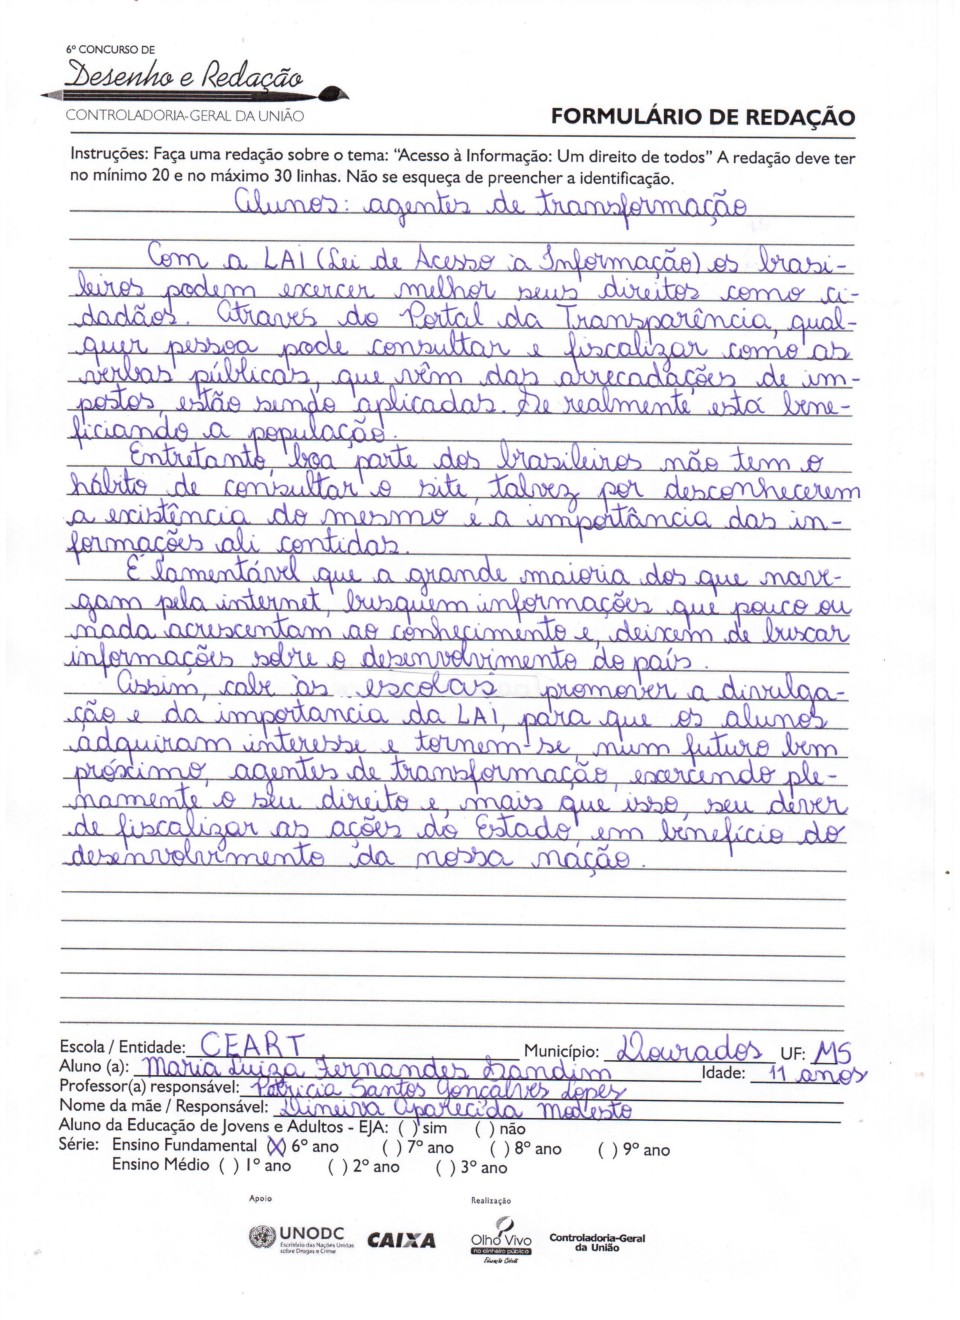 6º CONCURSO DE
Desenho e Redação
CONTROLADORIA-GERAL DA UNIÃO
FORMULÁRIO DE REDAÇÃO
Instruções: Faça uma redação sobre o tema: "Acesso à Informação: Um direito de todos" A redação deve ter
no mínimo 20 e no máximo 30 linhas. Não se esqueça de preencher a identificação.
Alunos: agentes de transformação
Com a LAI (Lei de Acesso à Informação) os brasi-
leiros podem exercer melhor seus direitos como ci-
dadãos. Através do Portal da Transparência, qual-
quer pessoa pode consultar e fiscalizar como as
verbas públicas, que vêm das arrecadações de im-
postos, estão sendo aplicadas. Se realmente está bene-
ficiando a população.
Entretanto, boa parte dos brasileiros não tem o
hábito de consultar o site, talvez por desconhecerem
a existência do mesmo e a importância das in-
formações ali contidas.
É lamentável que a grande maioria dos que nave-
gam pela internet, busquem informações que pouco ou
nada acrescentam ao conhecimento e, deixem de buscar
informações sobre o desenvolvimento do país.
Assim, cabe às escolas promover a divulga-
ção e da importancia da LAI, para que os alunos
adquiram interesse e tornem-se, num futuro bem
próximo, agentes de transformação, exercendo ple-
namente o seu direito e, mais que isso, seu dever
de fiscalizar as ações do Estado, em benefício do
desenvolvimento da nossa nação.
Escola / Entidade: CEART Município: Dourados UF: MS
Aluno (a): Maria Luiza Fernandes Landim Idade: 11 anos
Professor(a) responsável: Patricia Santos Gonçalves Lopes
Nome da mãe / Responsável: Aparecida Modesto
Aluno da Educação de Jovens e Adultos - EJA: ( ) sim ( ) não
Série: Ensino Fundamental (X) 6º ano ( ) 7º ano ( ) 8º ano ( ) 9º ano
Ensino Médio ( ) 1º ano ( ) 2º ano ( ) 3º ano
Apoio Realização
UNODC
Escritório das Nações Unidas
sobre Drogas e Crime
CAIXA
Olho Vivo
no dinheiro público
Educação Cidadã
Controladoria-Geral
da União